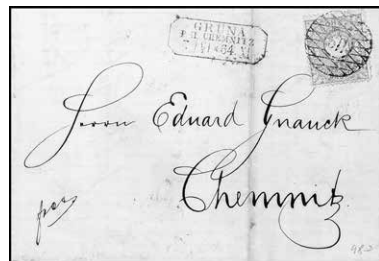 GRÜNA
B. CHEMNITZ
Herrn Eduard Gnauck
Chemnitz
fco